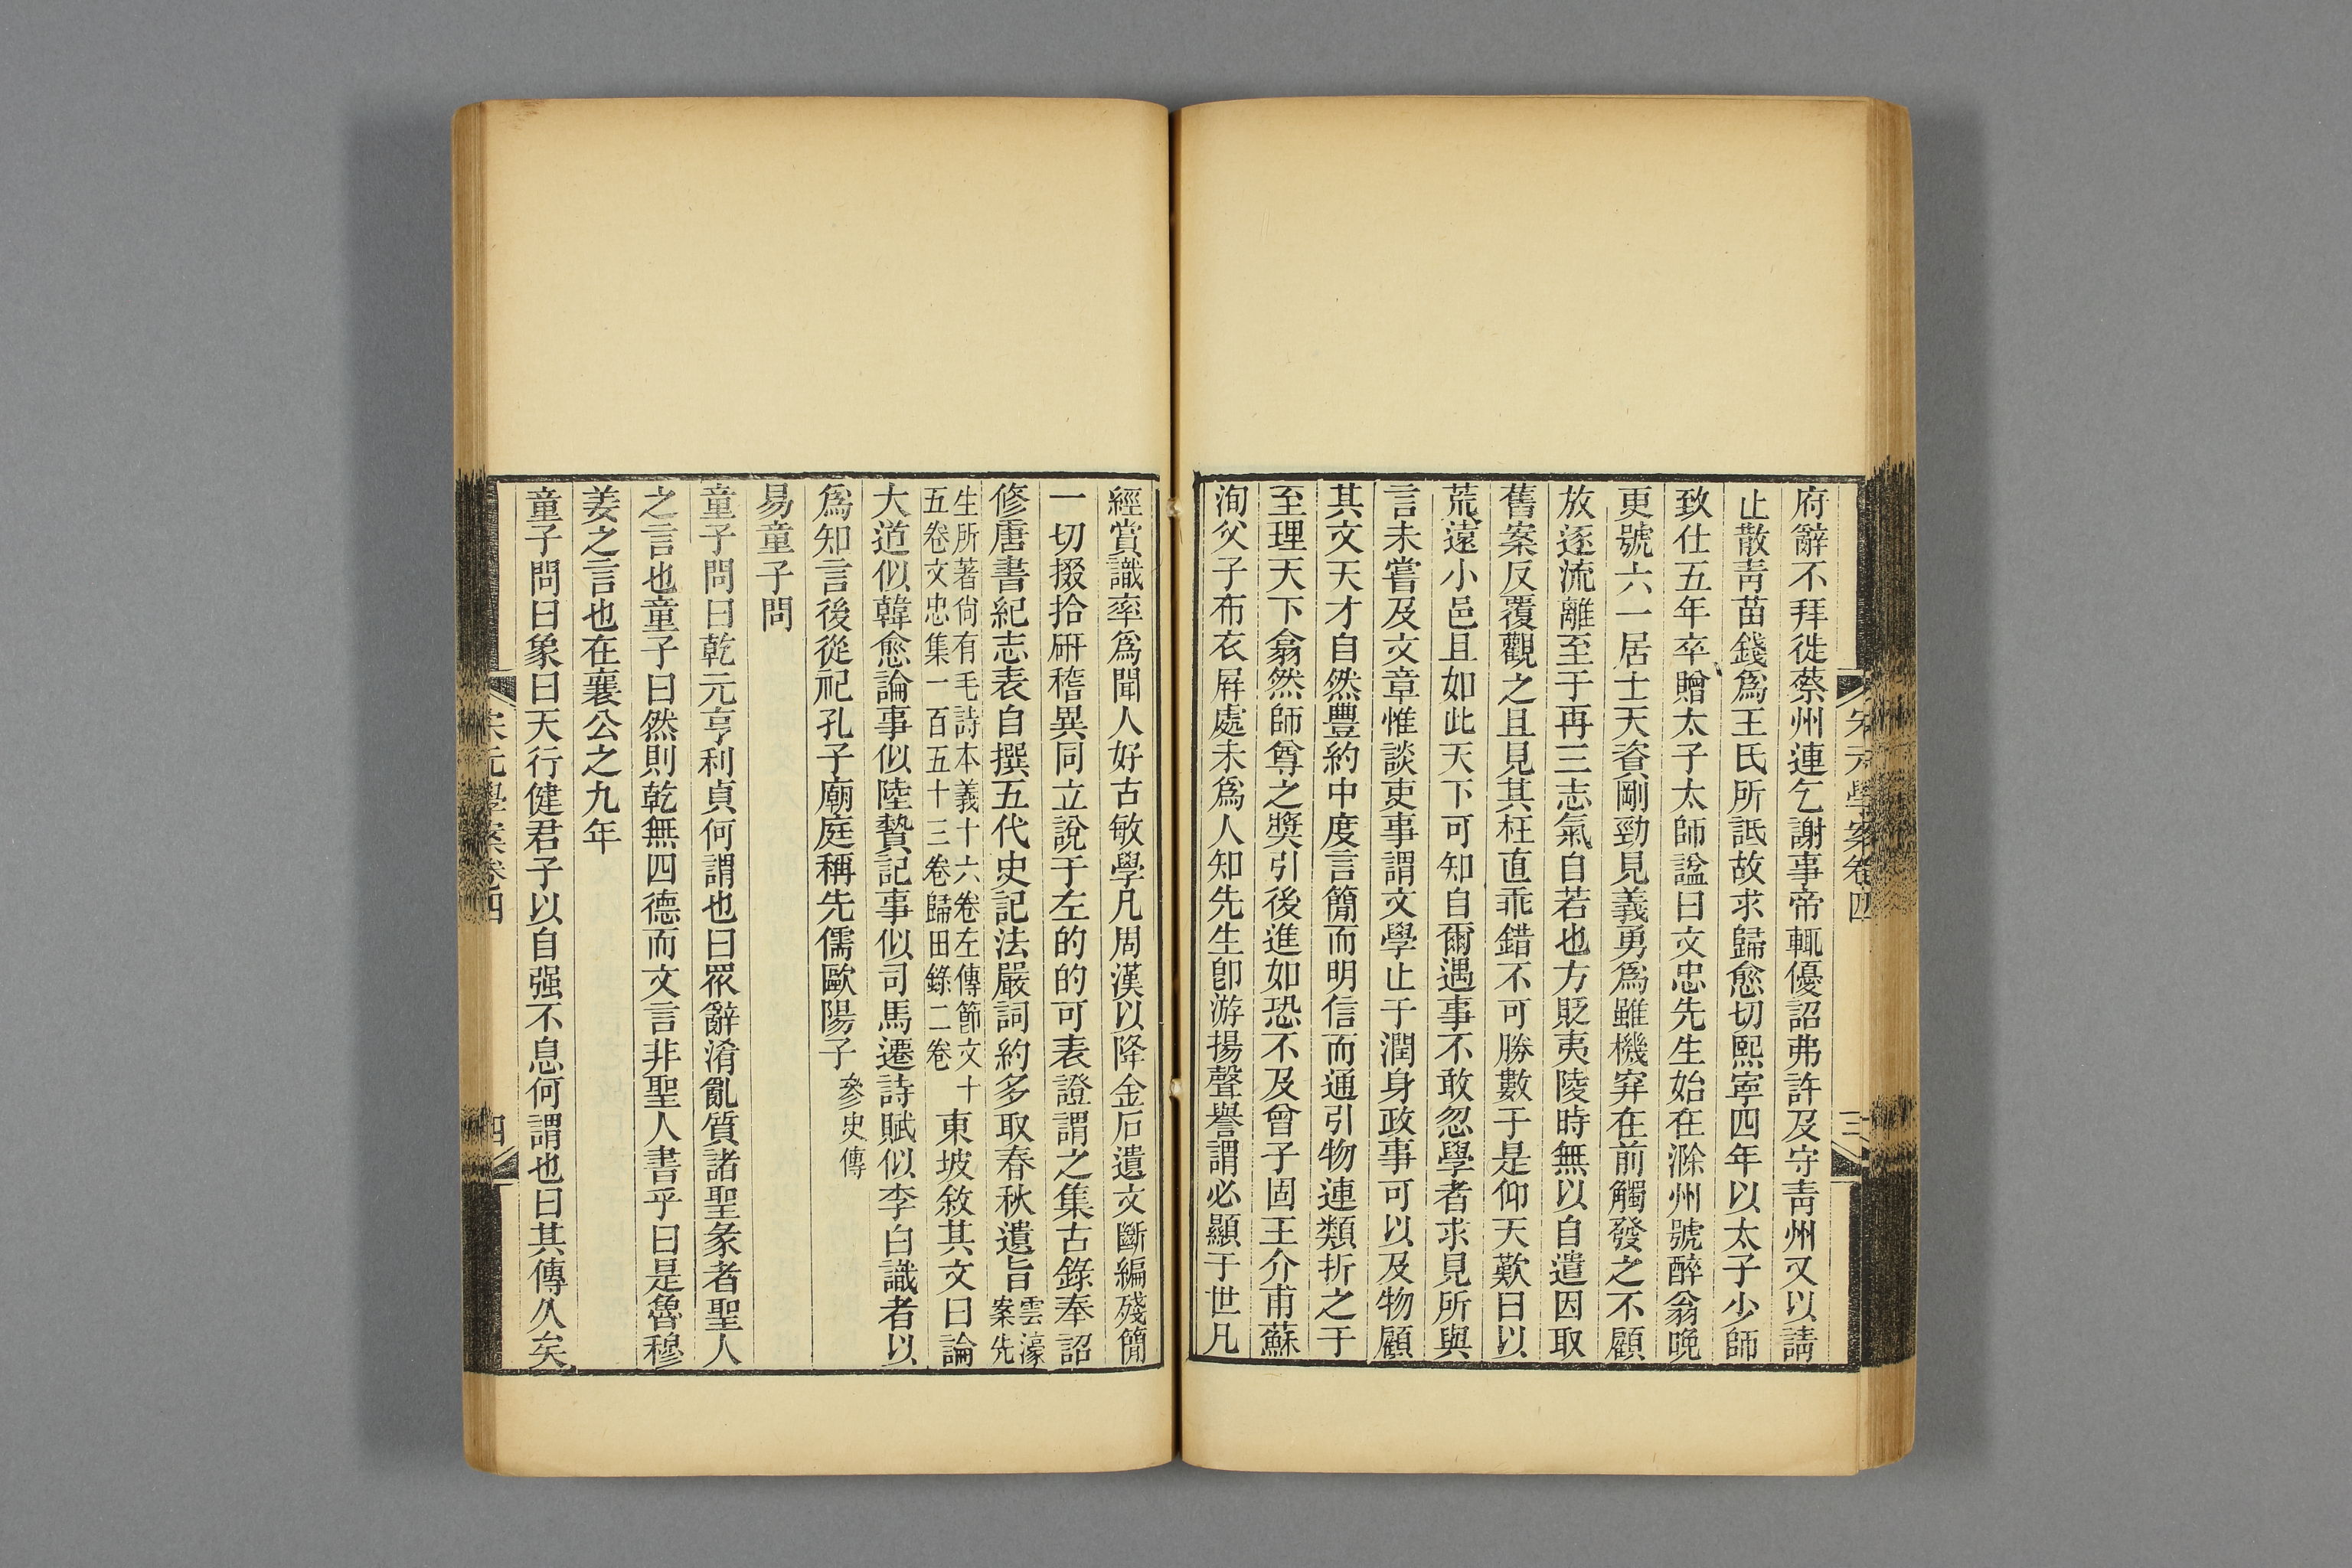 宋元學案卷四
三
府辭不拜徙蔡州連乞謝事帝輒優詔弗許及守靑州又以請
止散靑苗錢爲王氏所詆故求歸愈切熙寧四年以太子少師
致仕五年卒贈太子太師諡曰文忠先生始在滁州號醉翁晚
更號六一居士天資剛勁見義勇爲雖機穽在前觸發之不顧
放逐流離至于再三志氣自若也方貶夷陵時無以自遣因取
舊案反覆觀之且見其枉直乖錯不可勝數于是仰天歎曰以
荒遠小邑且如此天下可知自爾遇事不敢忽學者求見所與
言未嘗及文章惟談吏事謂文學止于潤身政事可以及物顧
其文天才自然豐約中度言簡而明信而通引物連類折之于
至理天下翕然師尊之獎引後進如恐不及曾子固王介甫蘇
洵父子布衣屛處未爲人知先生卽游揚聲譽謂必顯于世凡
經賞識率爲聞人好古敏學凡周漢以降金石遺文斷編殘簡
一切掇拾硏稽異同立說于左的的可表證謂之集古錄奉詔
修唐書紀志表自撰五代史記法嚴詞約多取春秋遺旨雲濠案先
生所著尙有毛詩本義十六卷左傳節文十五卷文忠集一百五十三卷歸田錄二卷東坡敘其文曰論
大道似韓愈論事似陸贄記事似司馬遷詩賦似李白識者以
爲知言後從祀孔子廟庭稱先儒歐陽子參史傳
易童子問
童子問曰乾元亨利貞何謂也曰眾辭淆亂質諸聖彖者聖人
之言也童子曰然則乾無四德而文言非聖人書乎曰是魯穆
姜之言也在襄公之九年
童子問曰象曰天行健君子以自强不息何謂也曰其傳久矣
宋元學案卷四
四